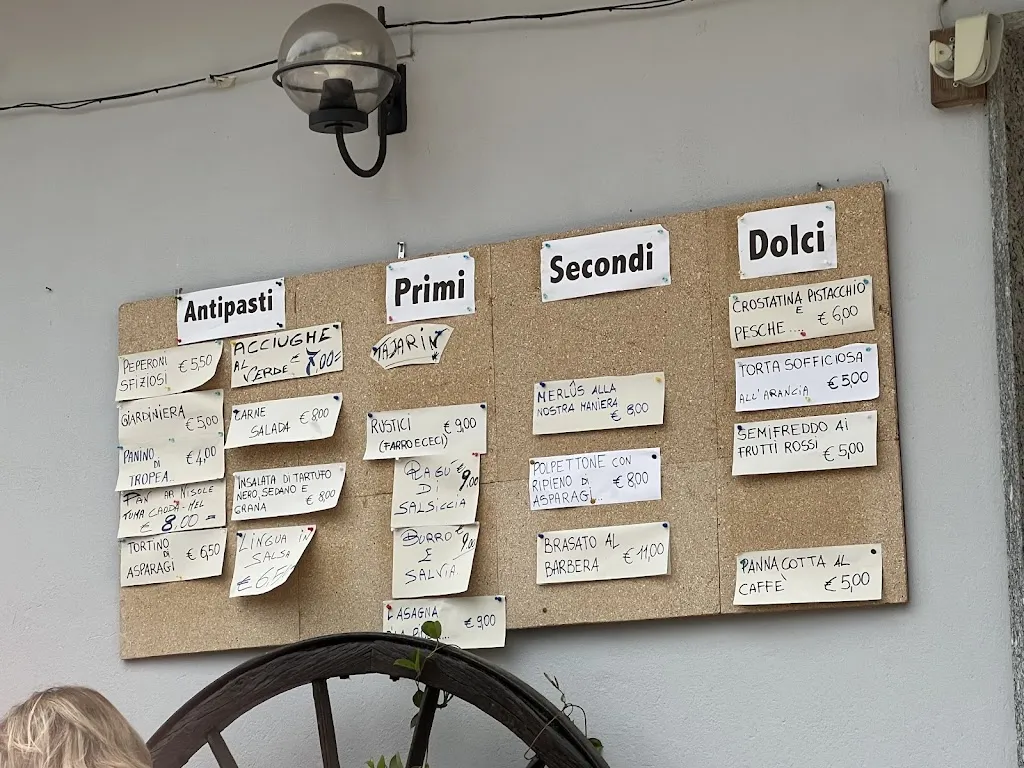 Antipasti
PEPERONI € 5,50
SFIZIOSI
GIARDINIERA
€ 5,00
PANINO € 4,00
DI
TROPEA..
PAN AR NISOLE
TUMA CAODA-MEL
€ 8.00=
TORTINO € 6,50
DI
ASPARAGI
ACCIUGHE
AL €
VERDE 7,00=
CARNE € 8,00
SALADA
INSALATA DI TARTUFO
NERO, SEDANO E
GRANA € 8,00
LINGUA IN
SALSA
Primi
TAJARIN
RUSTICI € 9,00
(FARRO E CECI)
RAGÚ € 9,00
DI
SALSICCIA
BURRO € 9,00
E
SALVIA
LASAGNA
€ 9,00
Secondi
MERLÛS ALLA
NOSTRA MANIERA € 8,00
POLPETTONE CON
RIPIENO DI € 8,00
ASPARAGI.
BRASATO AL
BARBERA € 11,00
Dolci
CROSTATINA PISTACCHIO
E
PESCHE.... € 6,00
TORTA SOFFICIOSA
ALL'ARANCIA € 5,00
SEMIFREDDO AI
FRUTTI ROSSI
€ 5,00
PANNA COTTA AL
CAFFE' € 5,00